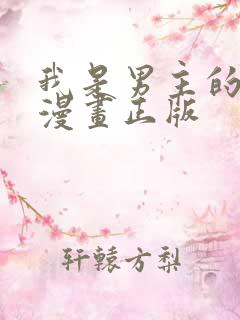 我是男主的
漫畫正版
轩辕方梨